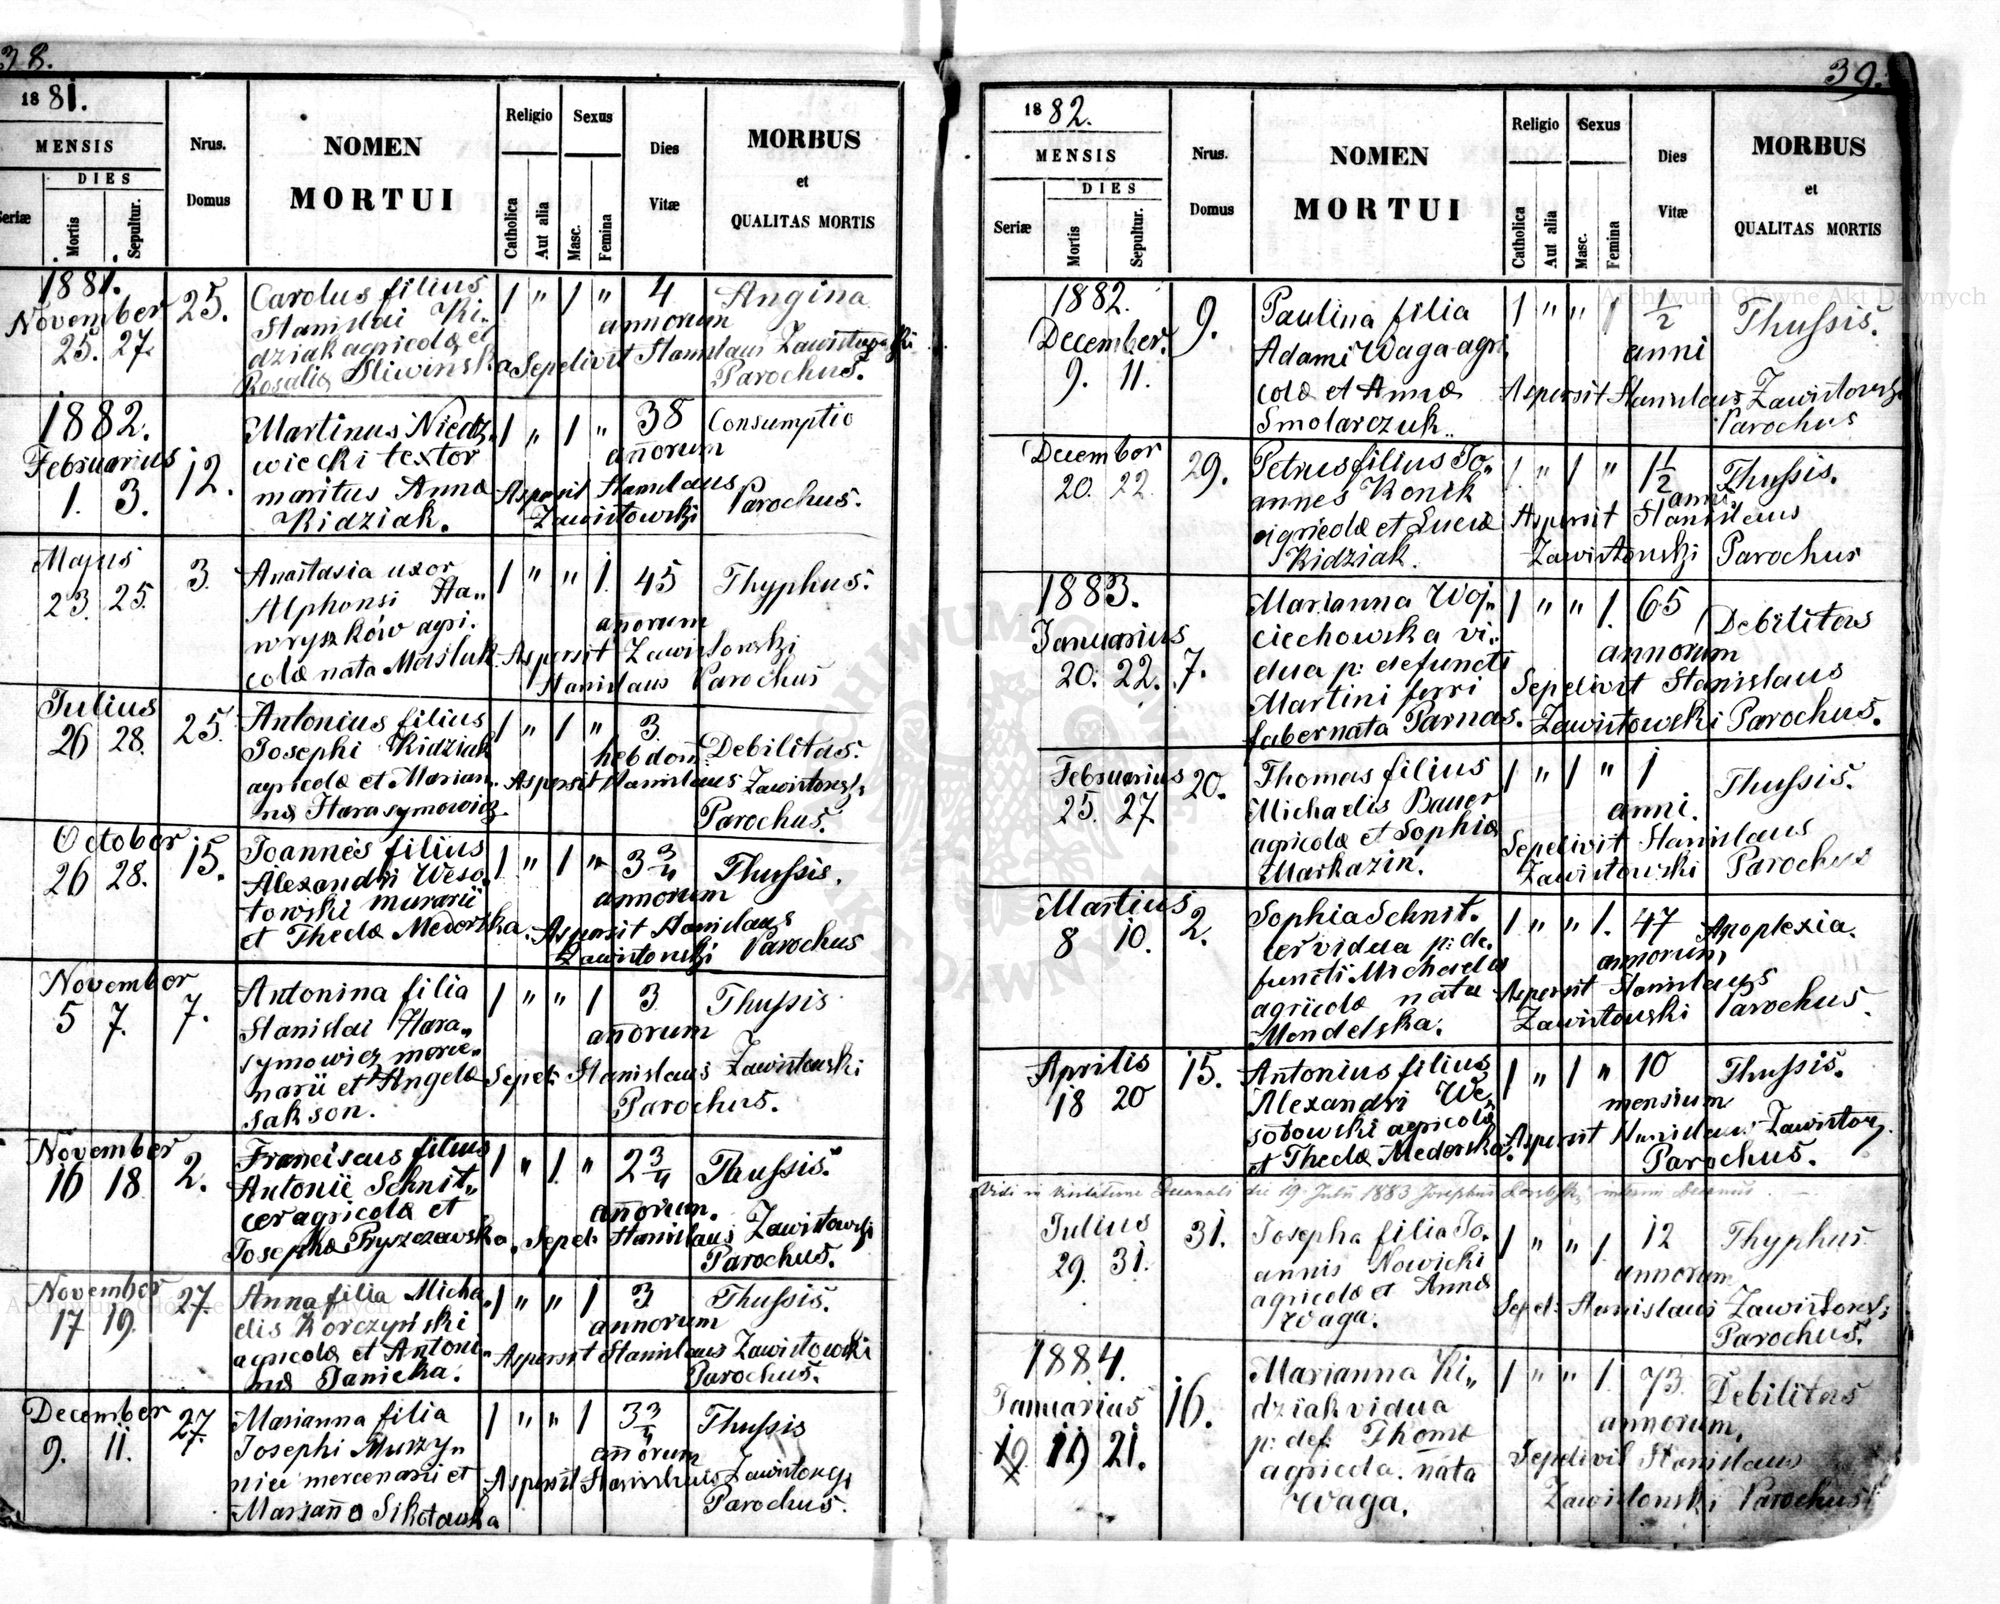 38.
1881.
MENSIS
DIES
Seriæ
Mortis
Sepultur.
Nrus.
Domus
NOMEN
MORTUI
Religio
Catholica
Aut alia
Sexus
Masc.
Femina
Dies
Vitæ
MORBUS
et
QUALITAS MORTIS
1881.
November
25. 27.
25.
Carolus filius
Stanislai Ki-
dziak agricolæ et
Rosaliæ Sliwinska
1 " 1 "
4
annorum
Angina
Sepelivit Stanislaus Zawistowski
Parochus.
1882.
Februarius
1. 3.
12.
Martinus Niedz„
wiecki textor
maritus Annæ
Kidziak.
1 „ 1 "
38
añorum
Consumptio
Aspersit Stanislaus
Zawistowski Parochus.
Majus
23. 25.
3.
Anastasia uxor
Alphonsi Ha„
wryszków agri.
colæ nata Masluk
1 " " 1.
45
añorum
Thyphus.
Aspersit Zawistowski
Stanislaus Parochus
Julius
26 28.
25.
Antonius filius
Josephi Kidziak
agricolæ et Marian„
næ Harasymowicz
1 " 1 "
3.
hebdom.
Debilitas.
Aspersit Stanislaus Zawistowski
Parochus.
October
26 28.
15.
Joannes filius
Alexandri Weso„
łowski murarii
et Theclæ Medorska.
1 " 1 "
3 3/4
annorum
Thussis.
Aspersit Stanislaus
Zawistowski Parochus
November
5 7.
7.
Antonina filia
Stanislai Hara„
symowicz merce„
narii et Angelæ
Sakson.
1 " " 1
3
añorum
Thussis
Sepel: Stanislaus Zawistowski
Parochus.
November
16 18
2.
Franciscus filius
Antonii Schnit„
cer agricolæ et
Josephæ Pryszczewska.
1 " 1. "
2 3/4
añorum.
Thussis.
Sepel: Stanislaus Zawistowski
Parochus.
November
17 19.
27.
Anna filia Micha„
elis Korczyński
agricolæ et Antoni„
næ Janicka.
1 " " 1
3
annorum
Thussis.
Aspersit Stanislaus Zawistowski
Parochus.
December
9. 11.
27.
Marianna filia
Josephi Murzy„
mercenarii et
Mariañæ Sikotowska
1 " " 1
3 3/4
añorum
Thussis
Aspersit Stanislaus Zawistowski
Parochus.
39.
1882.
MENSIS
DIES
Seriæ
Mortis
Sepultur.
Nrus.
Domus
NOMEN
MORTUI
Religio
Catholica
Aut alia
Sexus
Masc.
Femina
Dies
Vitæ
MORBUS
et
QUALITAS MORTIS
1882.
December.
9. 11.
9.
Paulina filia
Adami Waga agri„
colæ et Annæ
Smolarczuk.
1 " " 1
1/2
anni
Thussis.
Aspersit Stanislaus Zawistowski
Parochus
December
20. 22.
29.
Petrus filius Jo„
annes Konik
agricolæ et Luciæ
Kidziak.
1. " 1 "
1 1/2
anni
Thussis.
Aspersit Stanislaus
Zawistowski Parochus
1883.
Januarius
20. 22.
7.
Marianna Woj„
ciechowska vi„
dua p: defuncti
Martini ferri
faber nata Parnas.
1 " " 1.
65
annorum
Debilitas
Sepelivit Stanislaus
Zawistowski Parochus.
Februarius
25. 27
20.
Thomas filius
Michaelis Bauer
agricolæ et Sophiæ
Markazin.
1 " 1 "
1
anni.
Thussis.
Sepelivit Stanislaus
Zawistowski Parochus
Martius
8 10.
2.
Sophia Schnit.
cer vidua p: de.
functi Michaelis
agricolæ nata
Mondelska.
1 " " 1.
47
annorum
Apoplexia.
Aspersit Stanislaus
Zawistowski Parochus.
Aprilis
18 20
15.
Antonius filius
Alexandri We„
sołowski agricolæ
et Theclæ Medorska.
1 " 1 "
10
mensium
Thussis.
Aspersit Stanislaus Zawistow.
Parochus.
Vidi in visitatione Decanali die 19. Julii 1883 Josephus
Julius
29. 31.
31.
Josepha filia Jo„
annis Nowicki
agricolæ et Annæ
Waga.
1 " " 1.
12
annorum
Thyphus
Sepel: Stanislaus Zawistowski
Parochus.
1884.
Januarius
19 21.
16.
Marianna Ki„
dziak vidua
p: def: Thomæ
agricola. nata
Waga.
1 " " 1.
73.
annorum.
Debilitas
Sepelivit Stanislaus
Zawistowski Parochus
Archiwum Główne Akt Dawnych
Archiwum Główne Akt Dawnych